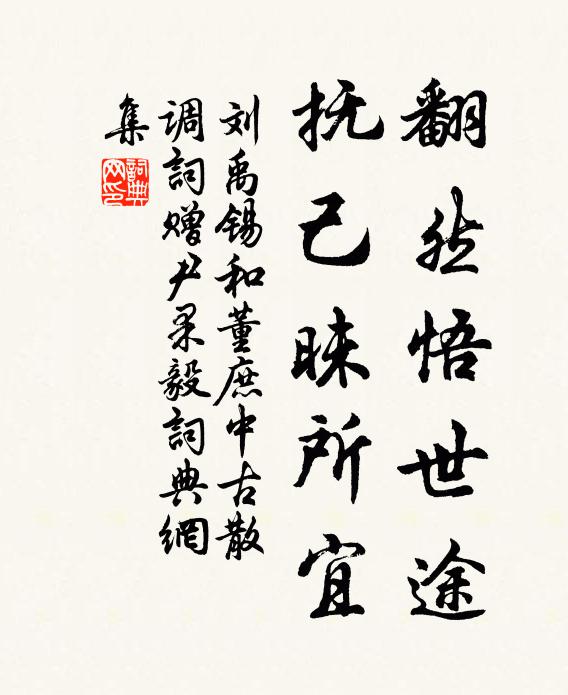 翻然悟世途
抚己昧所宜
刘禹锡和董庶中古散
调詞赠尹果毅詞典網
集
詞典
网印